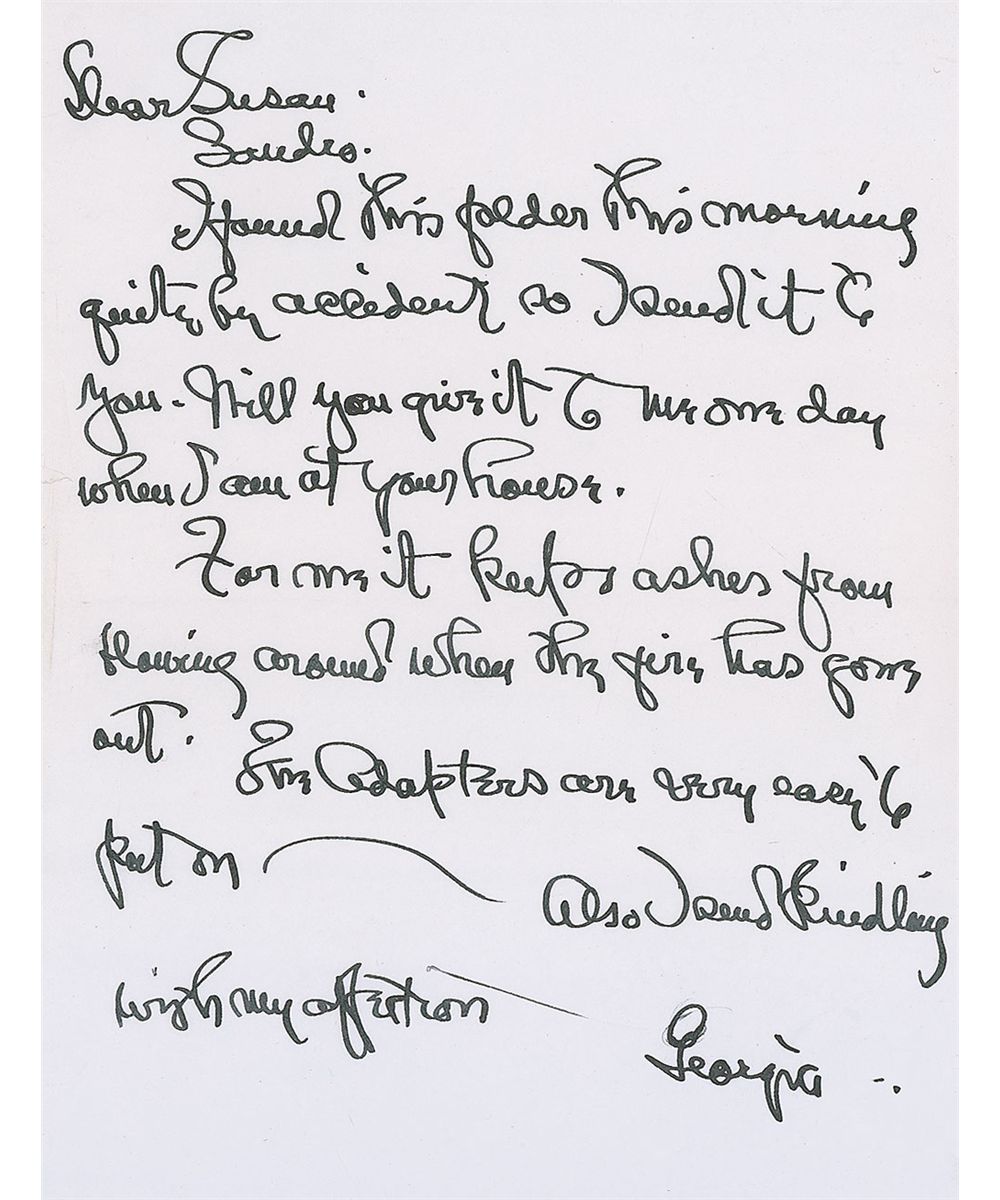 Dear Susan.
Sandro.
I found this folder this morning
quite by accident so I send it to
you. Will you give it to me one day
when I am at your house.
For me it keeps ashes from
blowing around when the fire has gone
out.
The Adapters are very easy to
put on
Also I send Kindling
with my affection
Georgia